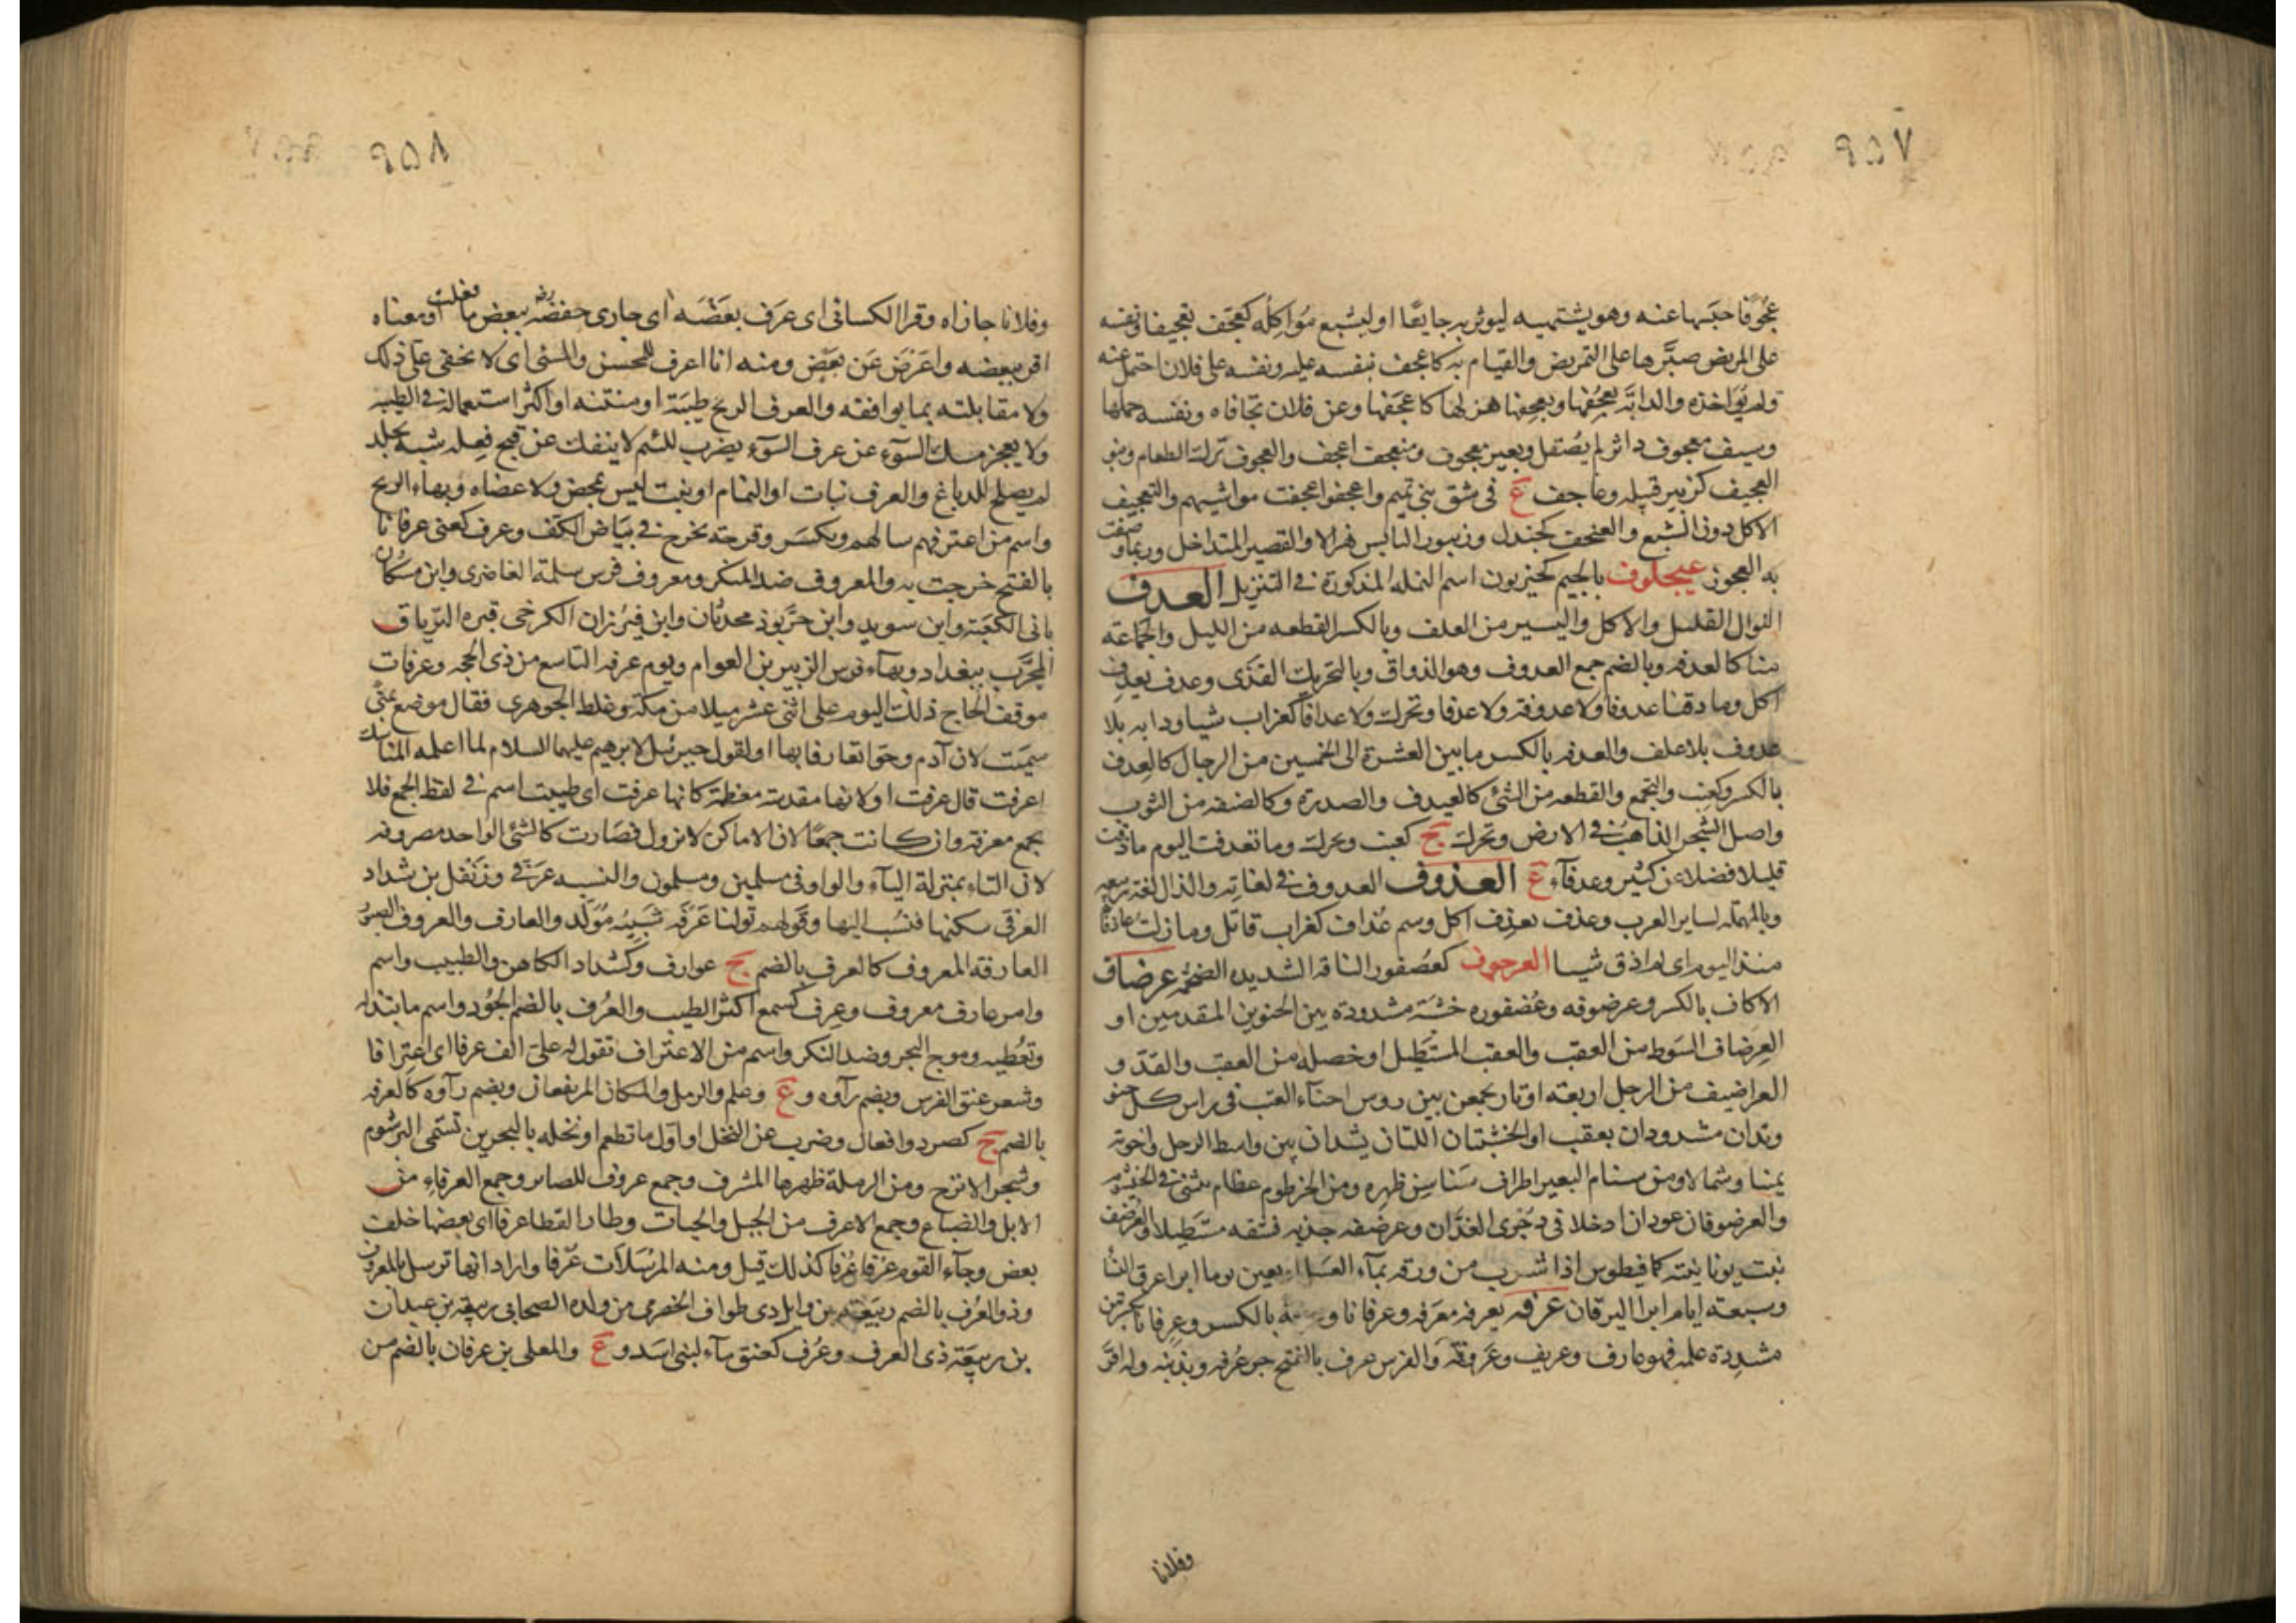 ٩٥٧
عُجُوفًا حبسها عنه وهو يشتهيه ليوثر به جايعًا او ليشبع مُوَاكِلُه كعجّف تعجيفا ونفسه
على المريض صبَّرها على التمريض والقيام به كاعجف بنفسه عليه ونفسه على فلان احتمل عنه
ولم يُوَاخذه والدابَّة يعجُفها ويعجِفها هزلها كاعجَفها وعن فلان تجافاه ونفسه حملها
وسيف معجوف داثر لم يُصقل وبعير معجوف ومنعجف اعجف والعجوف ترك الطعام وبنو
العجيف كزبير قبيله وعاجف ع في شق بني تميم واعجفوا عجفت مواشيهم والتعجيف
الاكل دون الشبع والعنجف كجندل وزنبور اليابس هزالا والقصير المتداخل وربما وصفت
به العجوز عيجلوف بالجيم كحيزبون اسم النمله المذكورة في التنزيل العدف
النوال القليل والاكل واليسير من العلف وبالكسر القطعه من الليل والجماعة
منا كالعدفه وبالضم جمع العدوف وهو الذواق وبالتحريك القذى وعدف يعدف
اكل وما ذقنا عدوفا ولا عدوفة ولا عدفا وتحرك ولا عدافا كغراب شيا ودابه بلا
عدوف بلا علف والعدفه بالكسر ما بين العشرة الى الخمسين من الرجال كالعِدف
بالكسر وكعنب والتجمع والقطعه من الشئ كالعيدف والصدرة وكالصنفه من الثوب
واصل الشجر الذاهب في الارض وتحرك ج كعنب وتحرك وما تعدفت اليوم ماذقت
قليلا فضلا عن كثير وعدفآء ع العذوف العدوف في لغاته والذال لغة ربيعه
وبالمهمله لساير العرب وعذف يعذِف اكل وسم عُذاف كغراب قاتل وما زلت عاذفًا
منذ اليوم اى لم اذق شيا العرجوف كعُصفور الناقة الشديده الضخمه عرضاف
الاكاف بالكسر وعرضوفه وعُصفوره خشبة مشدودة بين الحنوين المقدمين او
العِرضاف السَوط من العقب والعقب المستطيل او خصله من العقب والقدّ و
العراضيف من الرحل اربعة اوتار يجمعن بين روس احناء القتب في راس كل حنو
وتدان مشدودان بعقب او الخشبتان اللتان يشدان بين واسط الرحل واخرته
يمينا وشمالا ومن سنام البعير اطراف سَناسِن ظهره ومن الخرطوم عظام تنثنى في الخيشوم
والعرضوفان عودان ادخلا في دجرى الفدَّان وعرضفه جذبه فشقه مستطيلا والعرضف
نبت يونانيته كمافيطوس اذا شرب من ورقه بمآء العسل اربعين يوما ابرا عرق النسا
وسبعة ايام ابرا اليرقان عرفه يعرفه معرفه وعرفانا وعرفة بالكسر وعِرِفانا بكسرتين
مشددة علمه فهو عارف وعريف وعَروفَة والفرس عرف بالفتح جز عُرفه وبذنبه وله اقرّ
وفلانا
٩٥٨
وفلانا جازاه وقرا الكسائى اى عرَف بعضَه اى جازى حفصة رضه ببعض ما فعلت او معناه
اقر ببعضه واعرَض عن بعض ومنه انا اعرف للمحسن والمسئ اى لا يخفى على ذلك
ولا مقابلته بما يوافقه والعرف الريح طيبة او منتنه او اكثر استعماله في الطيبه
ولا يعجز مسك السوء عن عرف السوء يضرب للئيم لا ينفك عن قبح فعله شبه بجلد
لم يصلح للدباغ والعرف نبات او الثمام او نبت ليس بحمض ولا عضاه وبهاء الريح
واسم من اعترفهم سالهم ويكسَر وقرحة تخرج في بيَاض الكف وعرف كعنى عرفانا
بالفتح خرجت به والمعروف ضد المنكر ومعروف فرس سلمة الغاضرى وابن مسكان
بانى الكعبة وابن سويد وابن خرّبوذ محدثان وابن فيرُزان الكرخى قبره الترياق
المجرَّب ببغداد وبهآء فرس الزبير بن العوام ويوم عرفه التاسع من ذى الحجه وعرفات
موقف الحاج ذلك اليوم على اثنى عشر ميلا من مكة وغلط الجوهرى فقال موضع بمنى
سميت لان آدم وحوا تعارفا بها او لقول جبرئيل لابرهيم عليهما السلام لما اعلمه المناسك
اعرفت قال عرفت او لانها مقدسة معظمة كانها عرفت اى طيبت اسم في لفظ الجمع فلا
يجمع معرفة وان كانت جمعًا لان الاماكن لا تزول فصَارت كالشئ الواحد مصروفه
لان التاء بمنزلة اليآء والواو فى مسلمين ومسلمون والنسبه عرَفى وزنفل بن شداد
العرفى سكنها فنسُب اليها وقولهم نزلنا عَرَفه شَبيهُ مُوَلَّد والعارف والعروف الصبور
العارفه المعروف كالعرف بالضم ج عوارف وكشداد الكاهن والطبيب واسم
وامر عارف معروف وعِرف كسمع اكثر الطيب والعُرف بالضم الجُود واسم ما تبذله
وتعُطيه وموج البحر وضد النكر واسم من الاعتراف تقول له علىّ الف عرفا اى اعتِرافا
وشعر عنق الفرس ويضم رآوه و ع وعلم والرمل والمكان المرتفعان ويضم رآوه كالعرفه
بالضم ج كصرد واقعال وضرب من النخل او اول ما تطعم او نخله بالبحرين تسمى البرشوم
وشجر الاترج ومن الرملة ظهرها المشرف وجمع عروف للصابر وجمع العرفاءِ من
الابل والضباع وجمع الاعرف من الخيل والحيات وطار القطا عرفا اى بعضها خلف
بعض وجآء القوم عرفا عُرفا كذلك قيل ومنه المرسَلات عُرفا واراد انها ترسل بالمعروف
وذو العُرف بالضم ربيعة بن وايل ذى طواف الحضرمى من ولده الصحابى ربيعة بن عيدان
بن ربيعَة ذى العرف وعُرُف كعنق مآء لبنى اسَد و ع والمعلى بن عرفان بالضم من